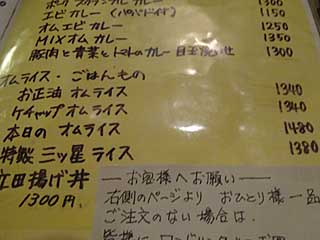 ポークブラウンカレーカレー 1300
エビカレー(パパドバイヤ) 1150
オムエビカレー 1250
MIXオムカレー 1350
豚肉と青菜とトマトのカレー 目玉 1300
オムライス・ごはんもの
お正油オムライス 1340
ケチャップオムライス 1340
本日のオムライス 1480
特製 三ッ星ライス 1380
立田揚げ丼
1300円.
―お客様へお願い―
右側のページより おひとり様一品
ご注文のない場合は、